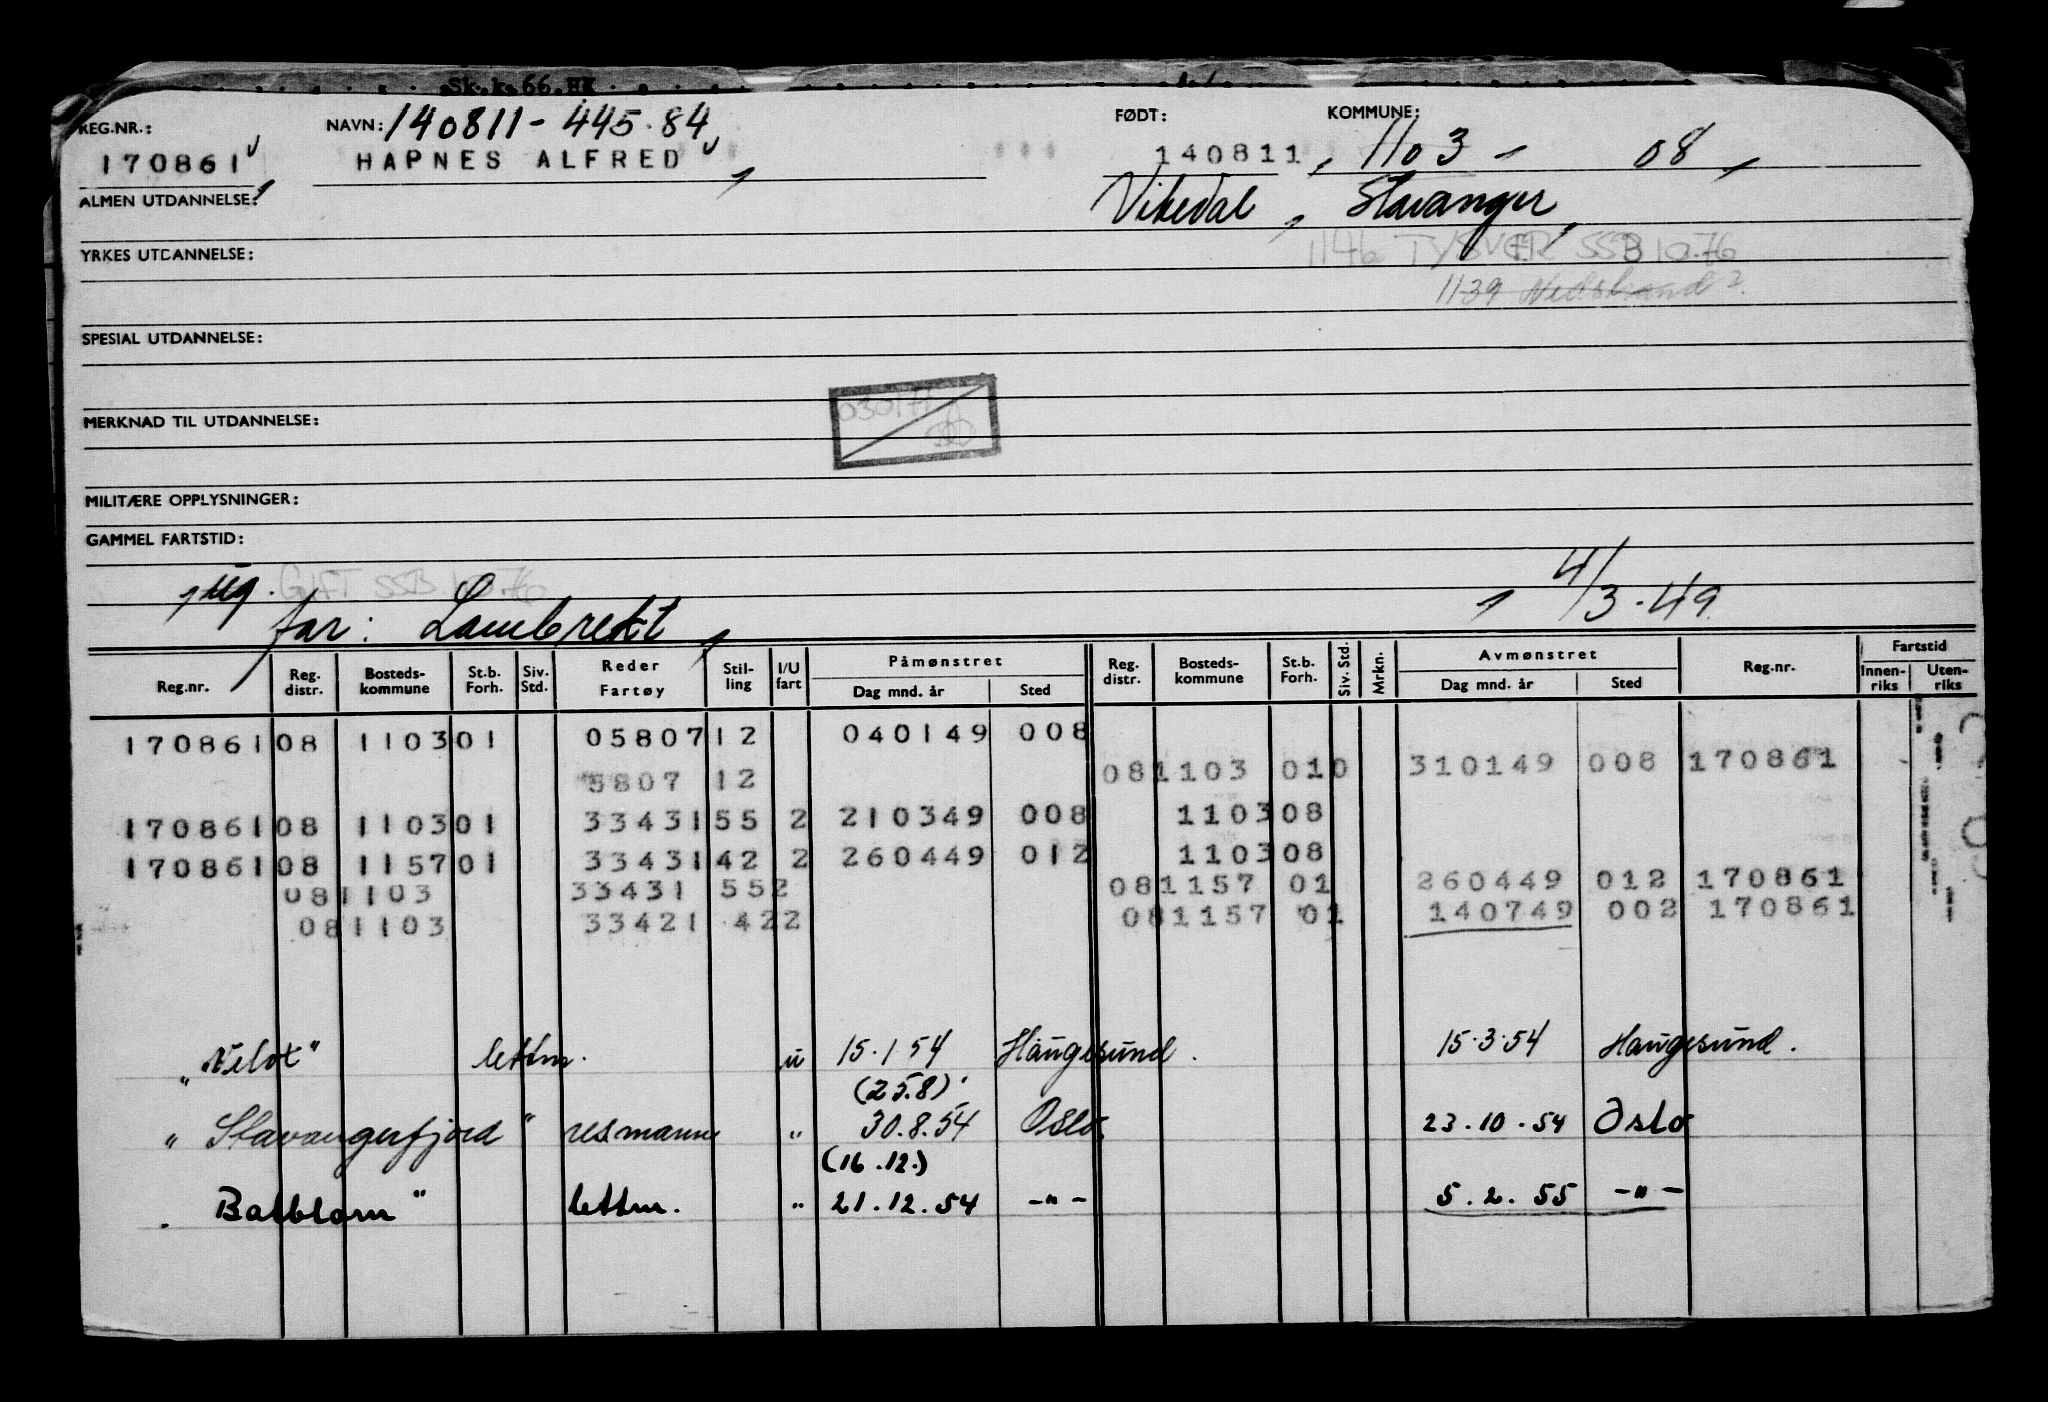 Sk.k. 66 HK
REG.NR.: NAVN: 140811-445.84 FØDT: KOMMUNE:
170861 HAPNES ALFRED 140811, 1103 - 08,
ALMEN UTDANNELSE: Vikedal, Stavanger,
YRKES UTDANNELSE: 1146 TYSVÆR SSB 10.76
1139 Nedstrand?
SPESIAL UTDANNELSE:
030177
MERKNAD TIL UTDANNELSE:
MILITÆRE OPPLYSNINGER:
GAMMEL FARTSTID:
ug. GIFT SSB 10.76 4/3.49
far: Lambrekt,
Reg.nr. Reg. distr. Bosteds-kommune St.b. Forh. Siv. Std. Reder Fartøy Stil-ling I/U fart Påmønstret Dag mnd. år Sted Reg. distr. Bosteds-kommune St.b. Forh. Siv. Std. Mrkn. Avmønstret Dag mnd. år Sted Reg.nr. Fartstid Innen-riks Uten-riks
170861 08 1103 01 05807 12 040149 008
5807 12 081103 010 310149 008 170861
170861 08 1103 01 33431 55 2 210349 008 1103 08
170861 08 1157 01 33431 42 2 260449 012 1103 08
081103 33431 552 081157 01 260449 012 170861
081103 33421 422 081157 01 140749 002 170861
"Velox" lettm. u 15.1 54 Haugesund. 15.3.54 Haugesund.
(25.8)
"Stavangerfjord" resmann " 30.8.54 Oslo. 23.10.54 Oslo
(16.12.)
Balblom" lettm. " 21.12.54 -"- 5.2.55 -"-